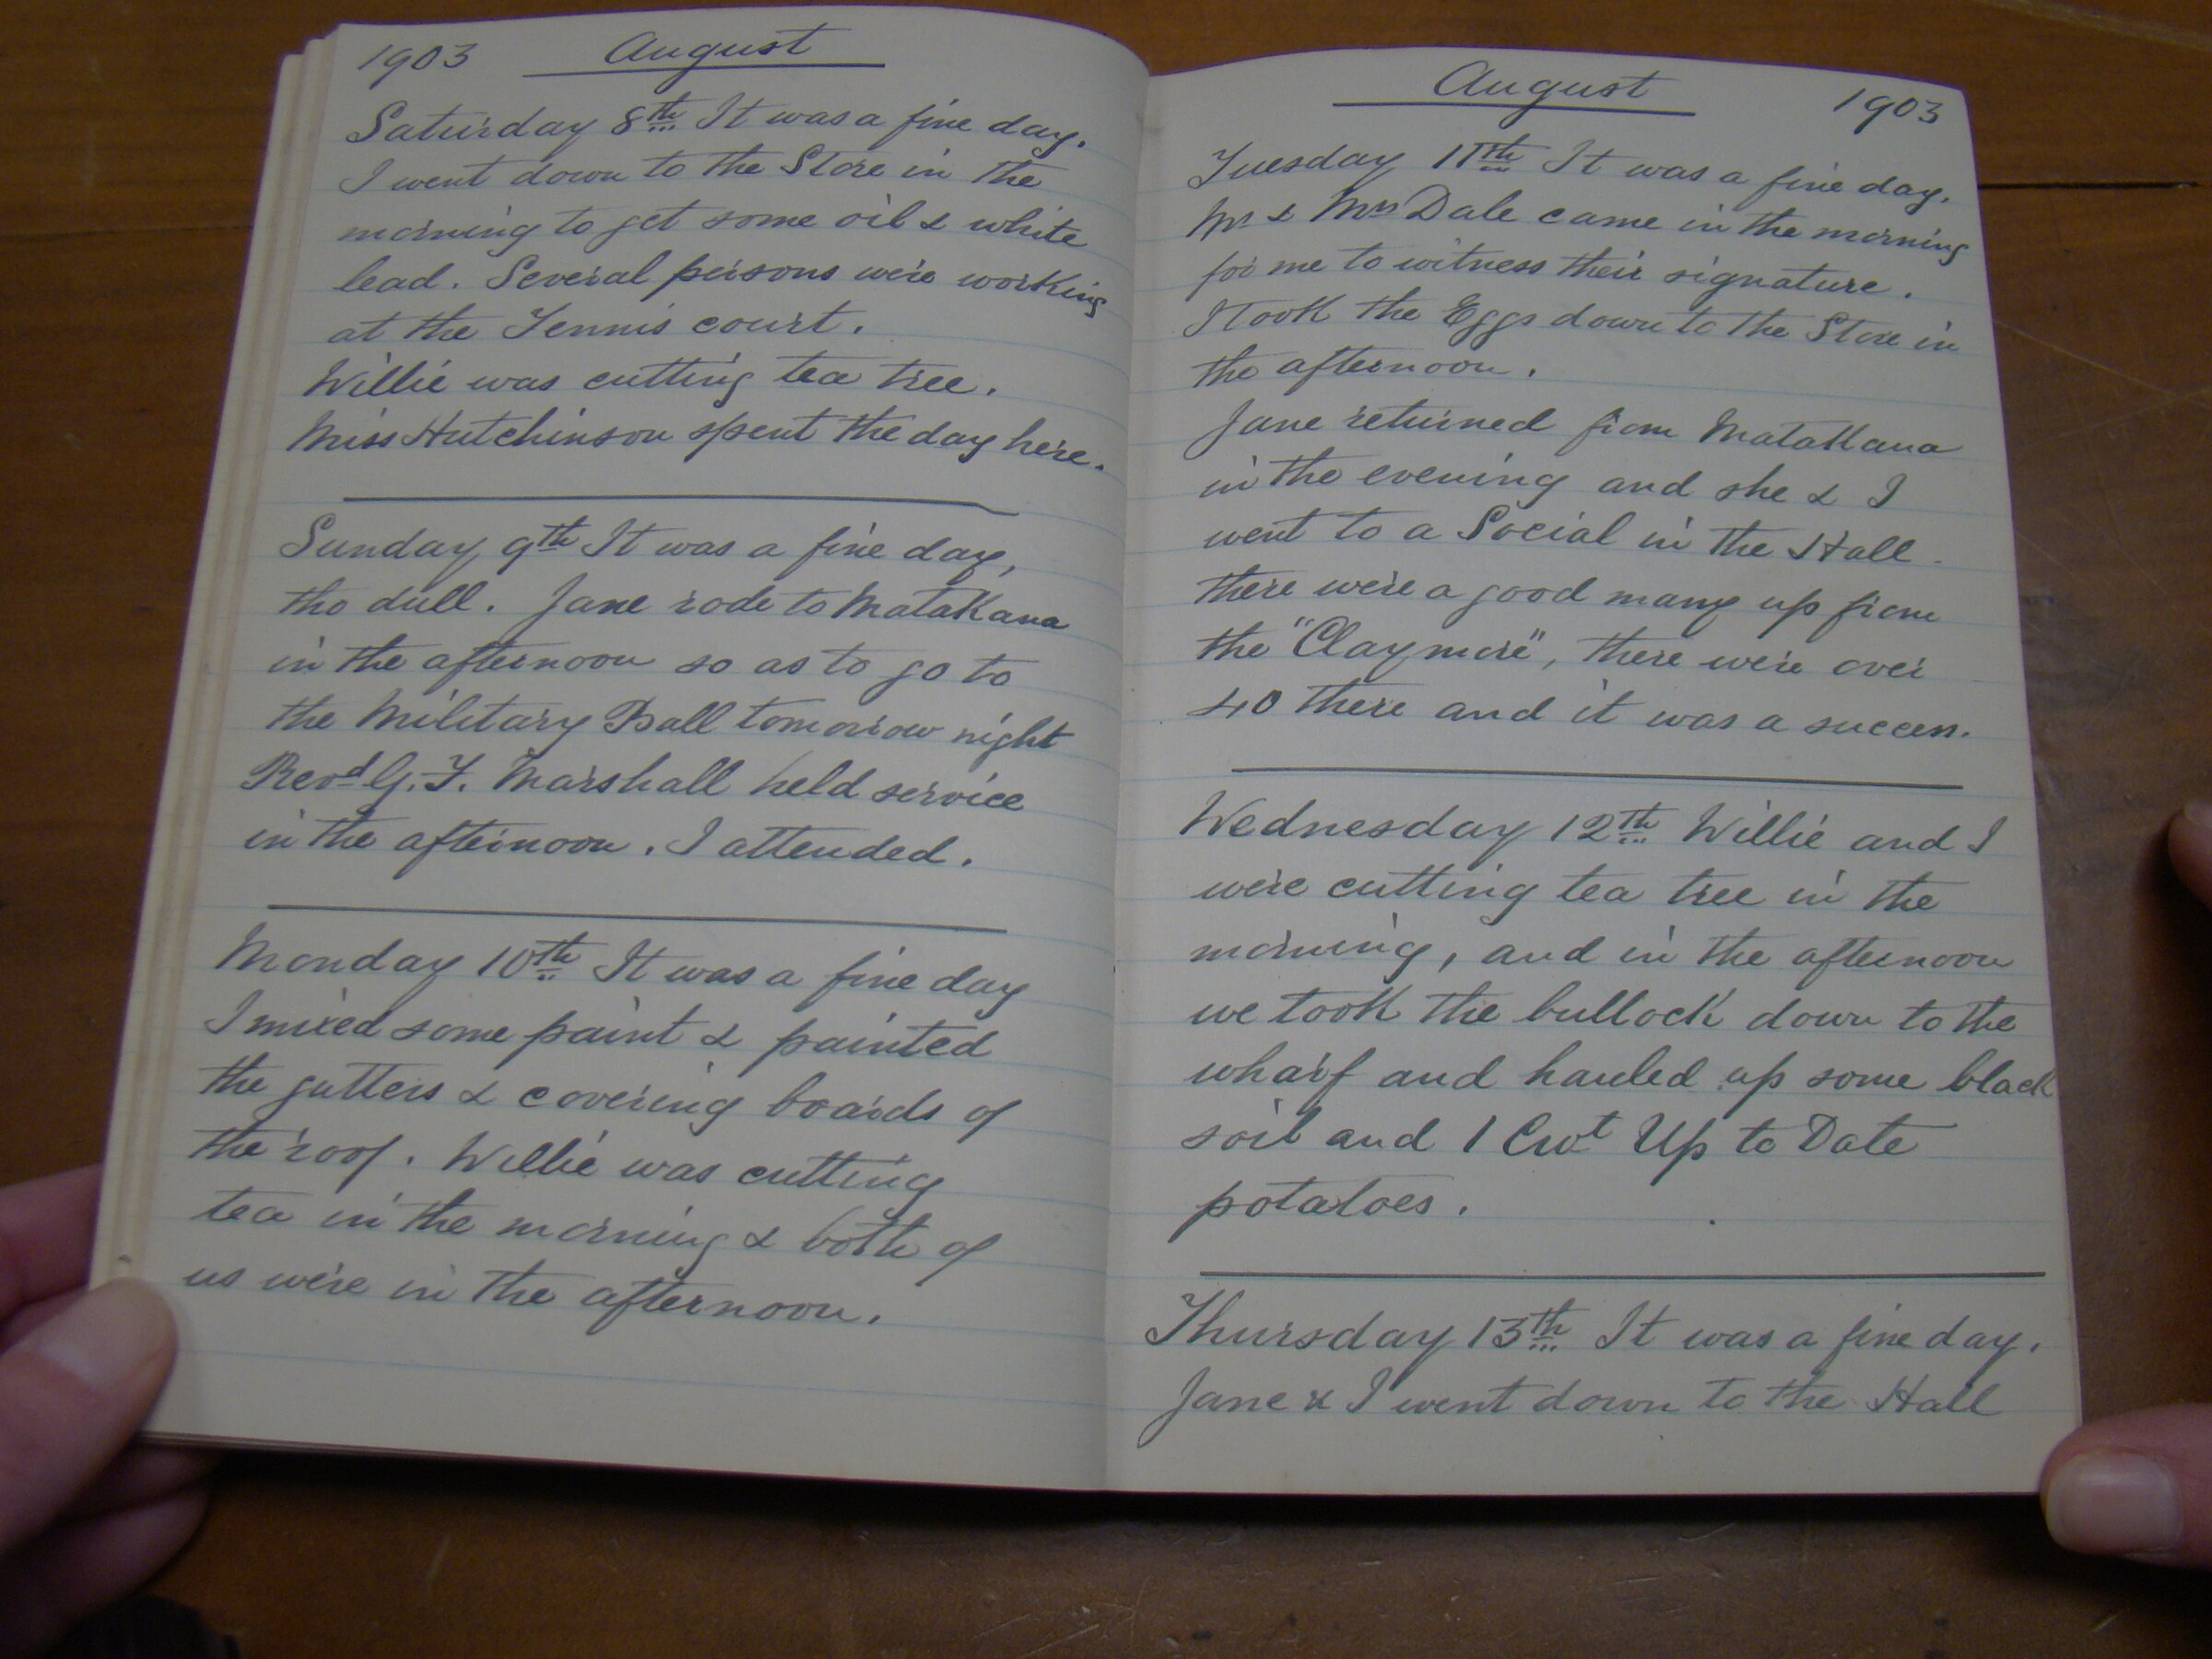 1903 August
Saturday 8th It was a fine day.
I went down to the Store in the
morning to get some oil & white
lead. Several persons were working
at the Tennis court.
Willie was cutting tea tree.
Miss Hutchinson spent the day here.
Sunday 9th It was a fine day,
tho dull. Jane rode to Matakana
in the afternoon so as to go to
the Military Ball tomorrow night
Revd G. F. Marshall held service
in the afternoon. I attended.
Monday 10th It was a fine day
I mixed some paint & painted
the gutters & covering boards of
the roof. Willie was cutting
tea in the morning & both of
us were in the afternoon.
August 1903
Tuesday 11th It was a fine day.
Mr & Mrs Dale came in the morning
for me to witness their signature.
I took the Eggs down to the Store in
the afternoon.
Jane returned from Matakana
in the evening and she & I
went to a Social in the Hall
there were a good many up from
the "Claymore", there were over
40 there and it was a success.
Wednesday 12th Willie and I
were cutting tea tree in the
morning, and in the afternoon
we took the bullock down to the
wharf and hauled up some black
soil and 1 Cwt Up to Date
potatoes.
Thursday 13th It was a fine day.
Jane & I went down to the Hall